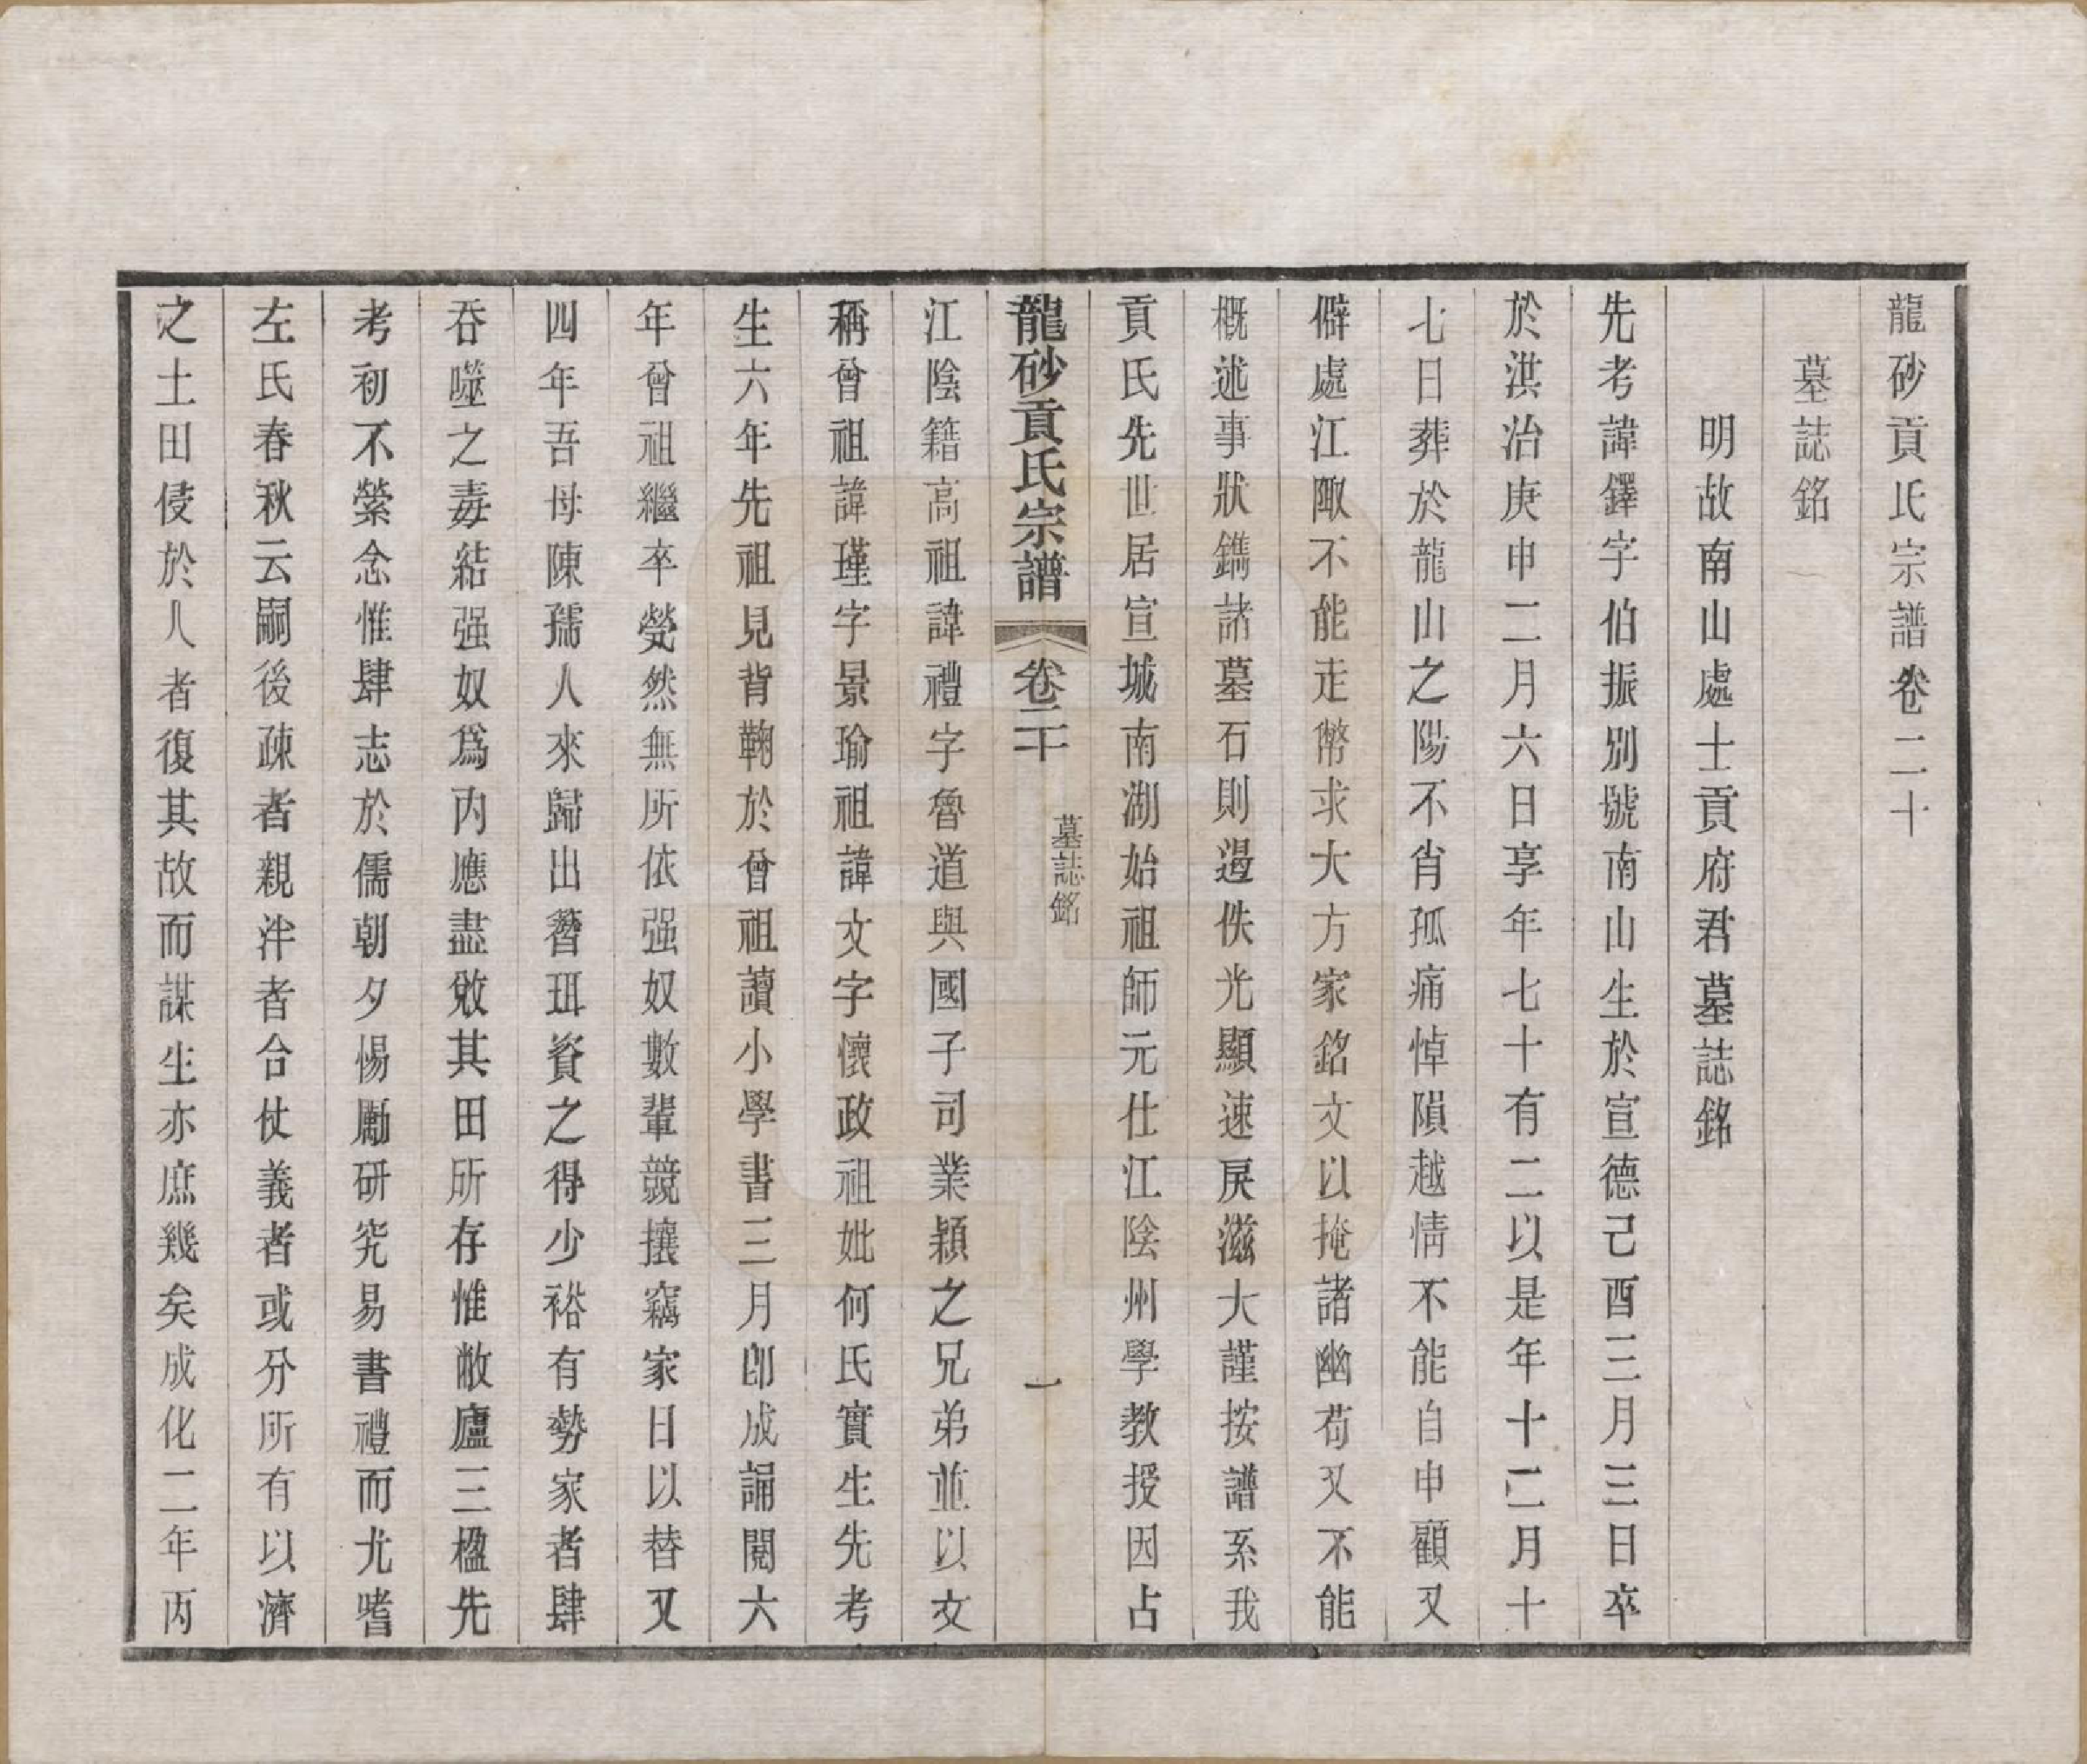 龍砂貢氏宗譜卷二十
墓誌銘
明故南山處士貢府君墓誌銘
先考諱鐸字伯振別號南山生於宣德己酉三月三日卒
於洪治庚申二月六日享年七十有二以是年十二月十
七日葬於龍山之陽不肖孤痛悼隕越情不能自申顧又
僻處江陬不能走幣求大方家銘文以掩諸幽苟又不能
概述事狀鐫諸墓石則遏佚光顯速戾滋大謹按譜系我
貢氏先世居宣城南湖始祖師元仕江陰州學教授因占
龍砂貢氏宗譜 卷二十 墓誌銘 一
江陰籍高祖諱禮字魯道與國子司業穎之兄弟並以文
稱曾祖諱瑾字景瑜祖諱文字懷政祖妣何氏實生先考
生六年先祖見背鞠於曾祖讀小學書三月即成誦閱六
年曾祖繼卒煢然無所依强奴數輩競攘竊家日以替又
四年吾母陳孺人來歸出簪珥資之得少裕有勢家者肆
吞噬之毒結强奴爲內應盡敓其田所存惟敝廬三楹先
考初不縈念惟肆志於儒朝夕惕勵研究易書禮而尤嗜
左氏春秋云嗣後疎者親泮者合仗義者或分所有以濟
之土田侵於人者復其故而謀生亦庶幾矣成化二年丙